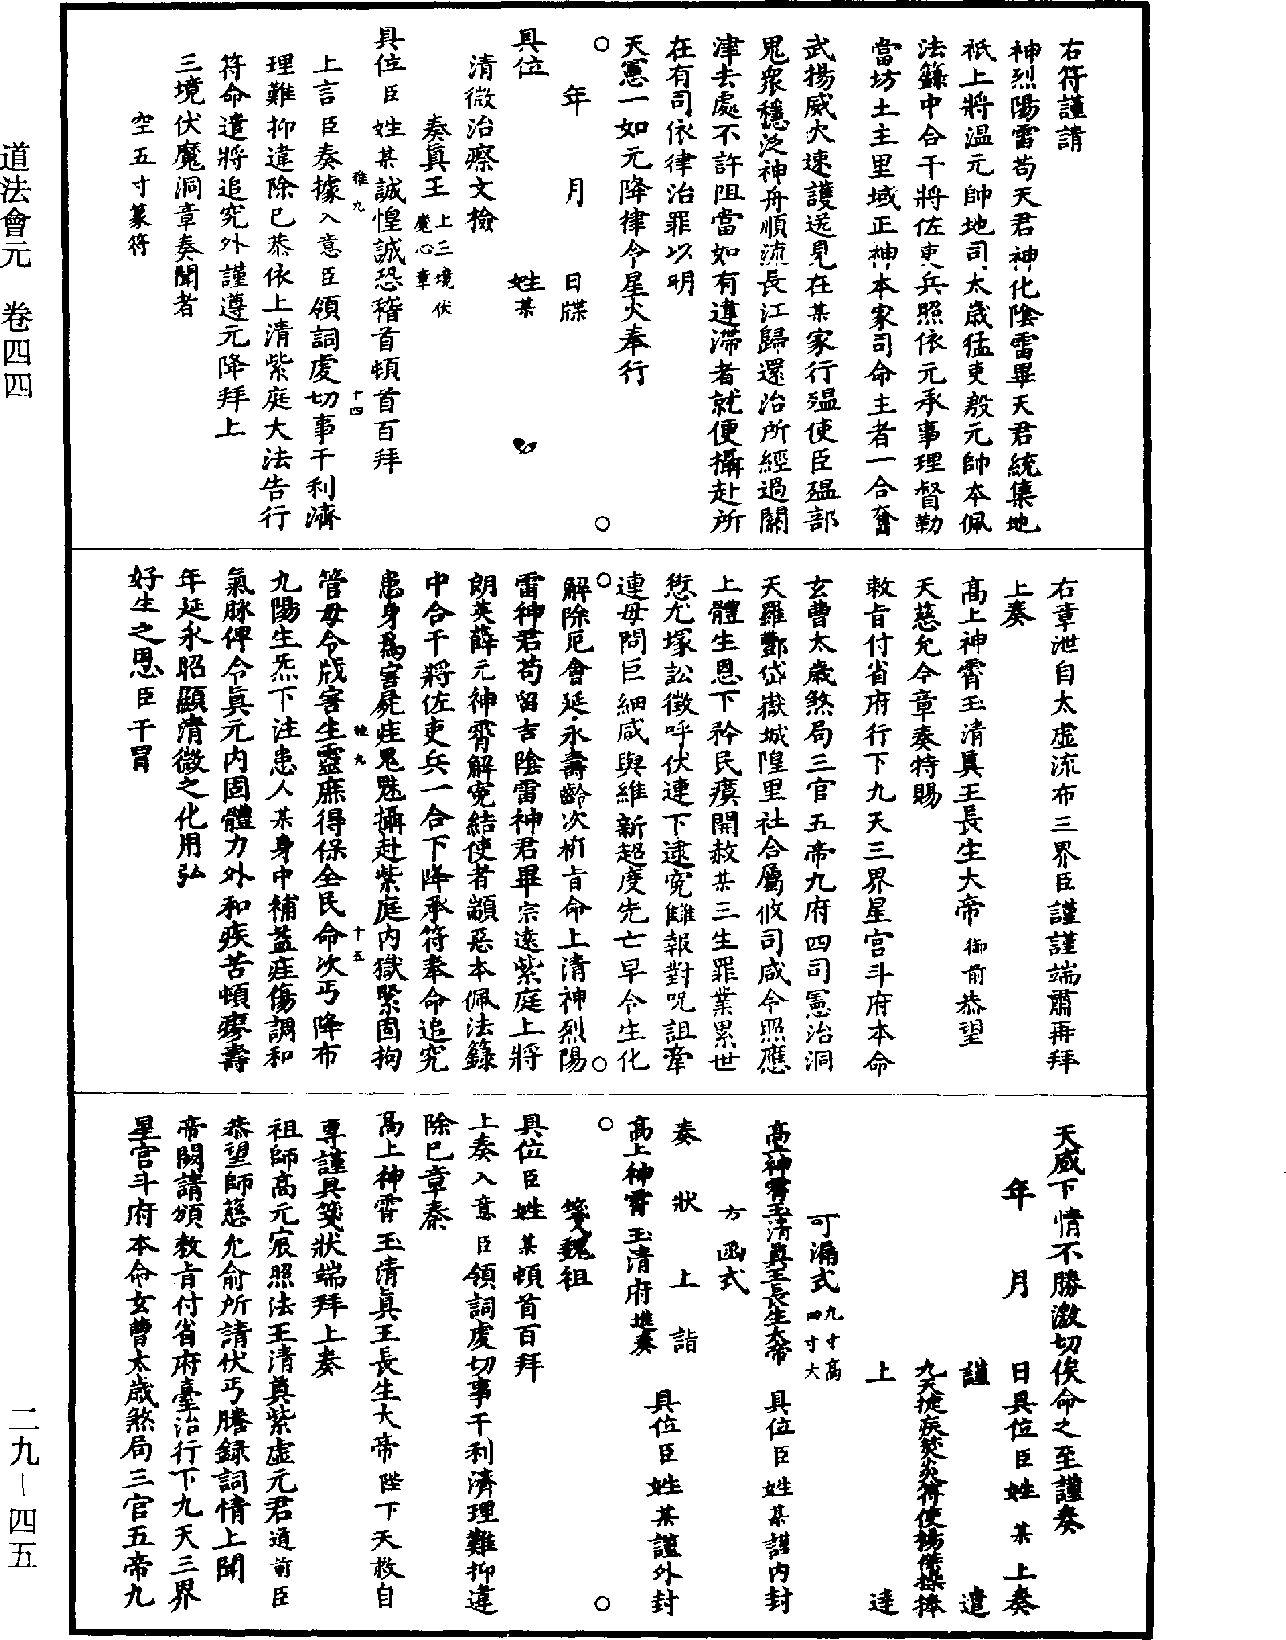 道法會元　卷四四
二九－四五
右符謹請
神烈陽雷苟天君神化陰雷畢天君統集地
祇上將溫元帥地司太歲猛吏殷元帥本佩
法籙中合干將佐吏兵照依元承事理督勒
當坊土主里域正神本家司命主者一合奮
武揚威火速護送見在某家行瘟使臣瘟部
鬼衆穩泛神舟順流長江歸還治所經過關
津去處不許阻當如有遵滯者就便攝赴所
在有司依律治罪以明
天憲一如元降律令星火奉行
年　月　日牒
具位　姓某
清微治瘵文檢
奏眞王上三境伏魔心章
具位臣姓某誠惶誠恐稽首頓首百拜
上言臣奏據入意臣領詞虔切事干利濟
理難抑違除已恭依上清紫庭大法告行
符命遣將追究外謹遵元降拜上
三境伏魔洞章奏聞者
空五寸篆符
右章泄自太虛流布三界臣謹謹端肅再拜
上奏
高上神霄玉清眞王長生大帝御前恭望
天慈允令章奏特賜
敕旨付省府行下九天三界星宮斗府本命
玄曹太歲煞局三官五帝九府四司憲治洞
天羅酆岱嶽城隍里社合屬攸司咸令照應
上體生恩下矜民瘼開赦某三生罪業累世
愆尤塚訟徵呼伏連下逮寃讎報對咒詛牽
連毋問巨細咸與維新超度先亡早令生化
解除厄會延永壽齡次頒旨命上清神烈陽
雷神君苟留吉陰雷神君畢宗遠紫庭上將
朗英薛元神霄解寃結使者顓惡本佩法籙
中合干將佐吏兵一合下降承符奉命追究
患身爲害屍疰鬼魅攝赴紫庭內獄緊固拘
管毋令戕害生靈庶得保全民命次丐降布
九陽生炁下注患人某身中補益疰傷調和
氣脉俾令眞元內固體力外和疾苦頓瘳壽
年延永昭顯清微之化用弘
好生之恩臣干冒
天威下情不勝激切俟命之至謹奏
年　月　日具位臣姓某上奏
謹　遣
九天捷疾焚炎符使楊傑操捧
上　達
可漏式九寸高四寸大
高上神霄玉清眞王長生大帝　具位臣姓某謹內封
方函式
奏狀上詣
高上神霄玉清府進奏　具位臣姓某謹外封
箋魏祖
具位臣姓某頓首百拜
上奏入意臣領詞虔切事干利濟理難抑違
除已章奏
高上神霄玉清眞王長生大帝陛下天敕自
專謹具箋狀端拜上奏
祖師高元宸照法王清眞紫虛元君通前臣
恭望師慈允俞所請伏丐謄錄詞情上聞
帝闕請頒敕旨付省府臺治行下九天三界
星宮斗府本命玄曹太歲煞局三官五帝九